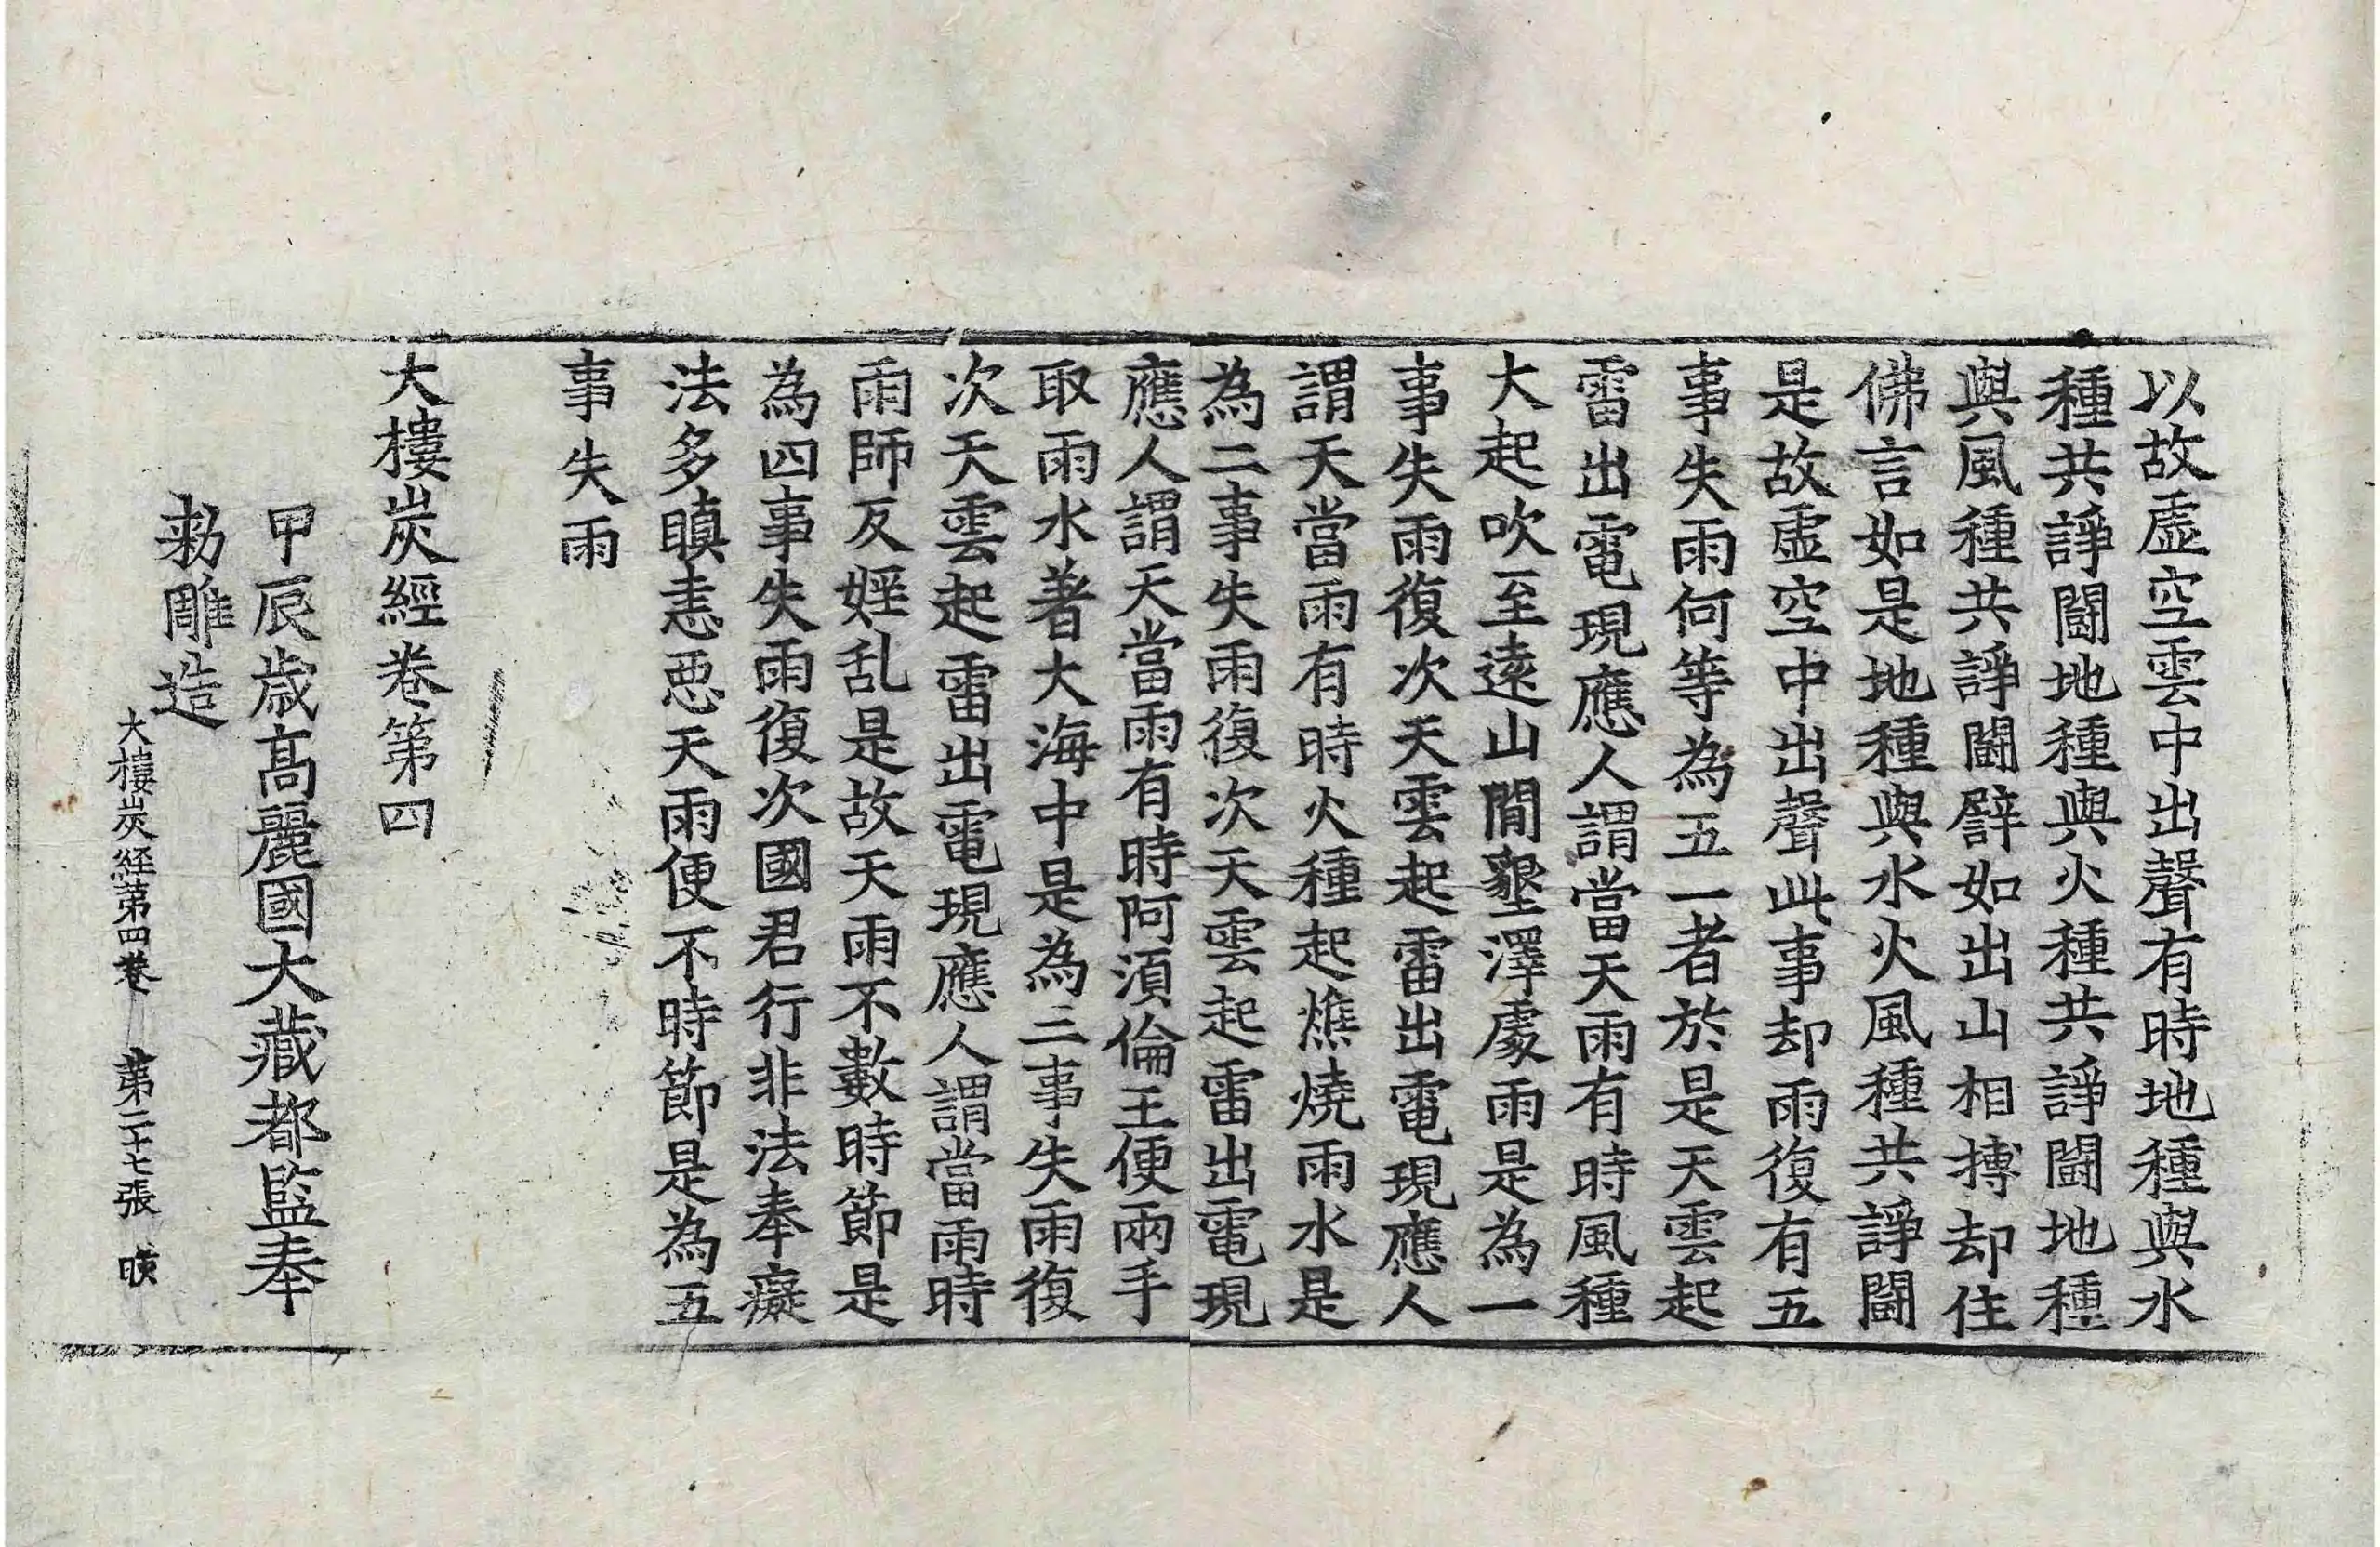 以故虛空雲中出聲有時地種與水
種共諍鬪地種與火種共諍鬪地種
與風種共諍鬪譬如出山相搏却住
佛言如是地種與水火風種共諍鬪
是故虛空中出聲此事却雨復有五
事失雨何等為五一者於是天雲起
雷出電現應人謂當天雨有時風種
大起吹至遠山閒墾澤處雨是為一
事失雨復次天雲起雷出電現應人
謂天當雨有時火種起燋燒雨水是
為二事失雨復次天雲起雷出電現
應人謂天當雨有時阿須倫王便兩手
取雨水著大海中是為三事失雨復
次天雲起雷出電現應人謂當雨時
雨師反婬乱是故天雨不數時節是
為四事失雨復次國君行非法奉癡
法多瞋恚惡天雨便不時節是為五
事失雨
大樓炭經卷第四
甲辰歲高麗國大藏都監奉
勑雕造
大樓炭経第四卷 第二十七張 暎